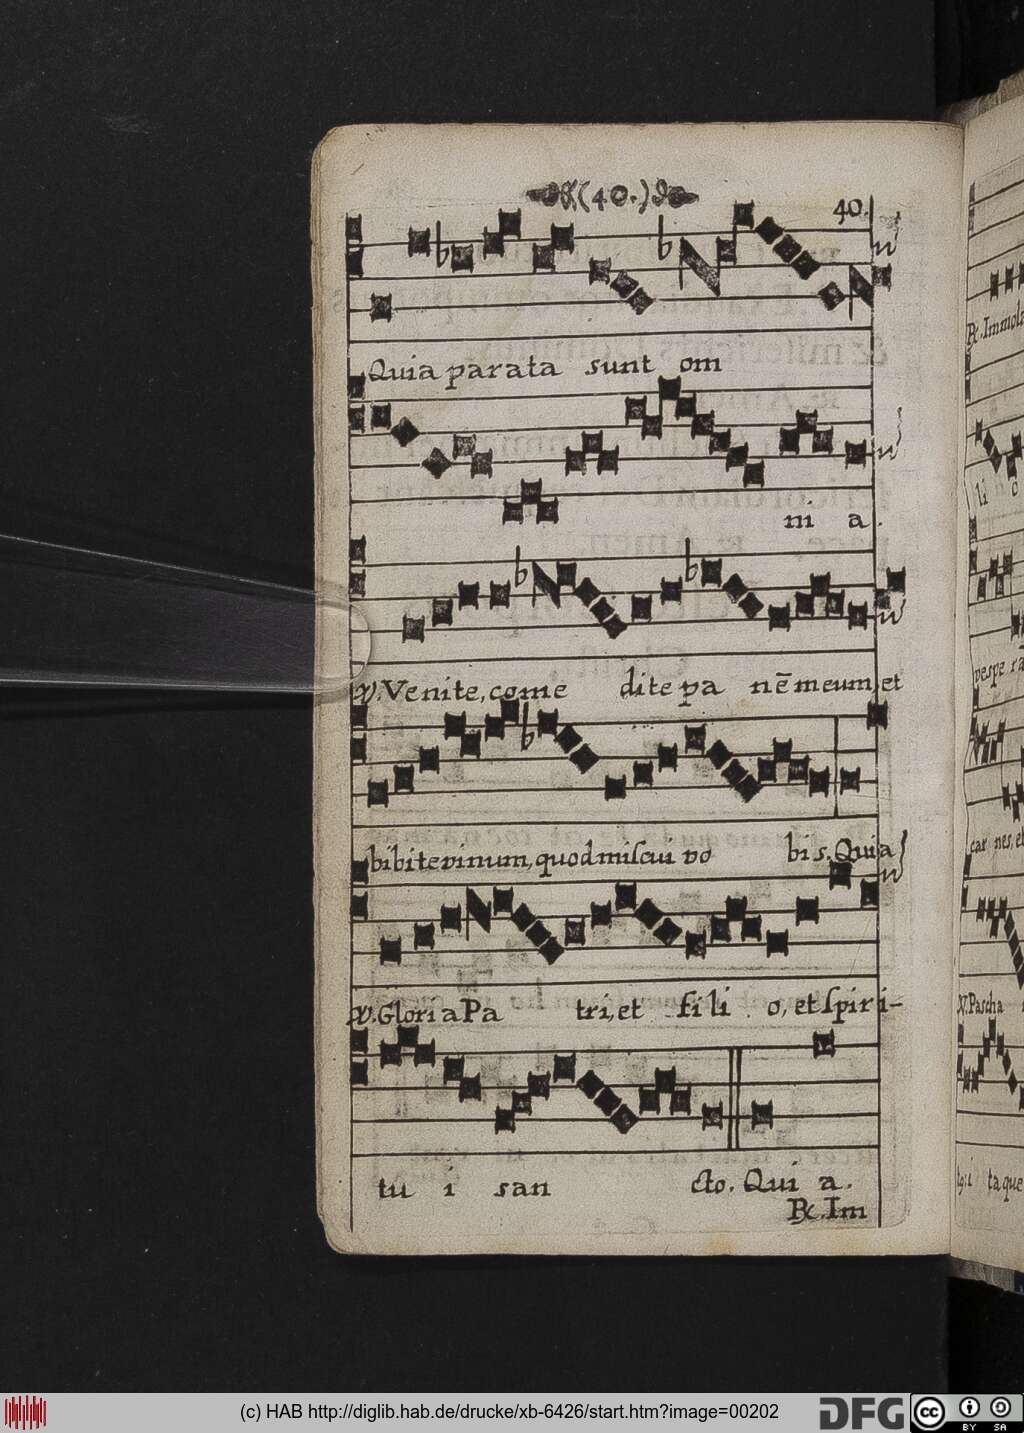 (40.)
40.
Quia parata sunt om
ni a.
℣. Venite, come dite pa nē meum, et
bibite vinum, quod miscui vo bis. Quia
℣. Gloria Pa tri, et fi li o, et spiri-
tu i san cto. Qui a.
℟. Im
℟. Immola
li o
vespe rā
car nes, et
℣. Pascha
ta que
(c) HAB http://diglib.hab.de/drucke/xb-6426/start.htm?image=00202
DFG
cc
BY SA